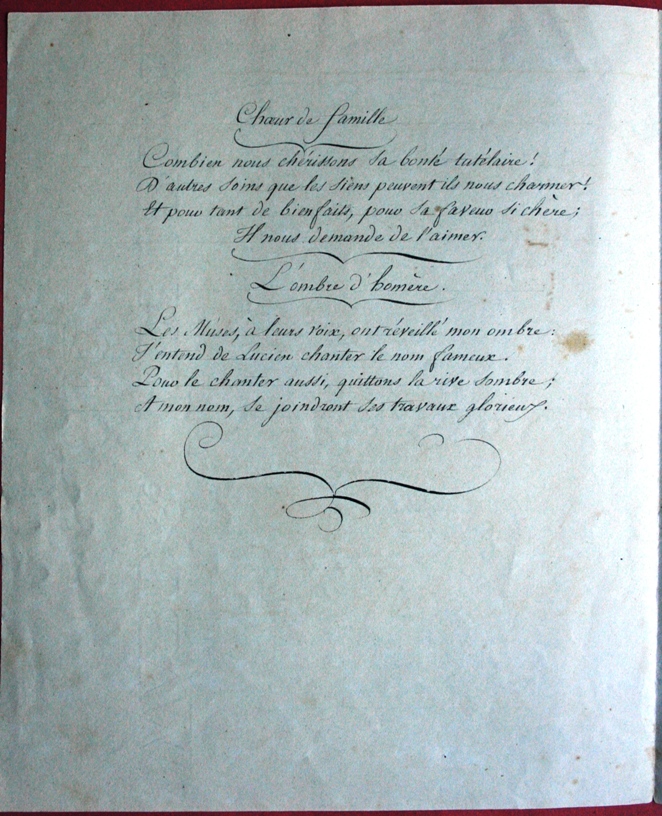 Chœur de famille
Combien nous chérissons sa bonté tutélaire!
D'autres soins que les siens peuvent ils nous charmer!
Et pour tant de bienfaits, pour sa faveur si chère;
Il nous demande de l'aimer.
L'ombre d'homère.
Les Muses, à leurs voix, ont réveillé mon ombre:
J'entend de Lucien chanter le nom fameux.
Pour le chanter aussi, quittons la rive sombre;
A mon nom, se joindront ses travaux glorieux.